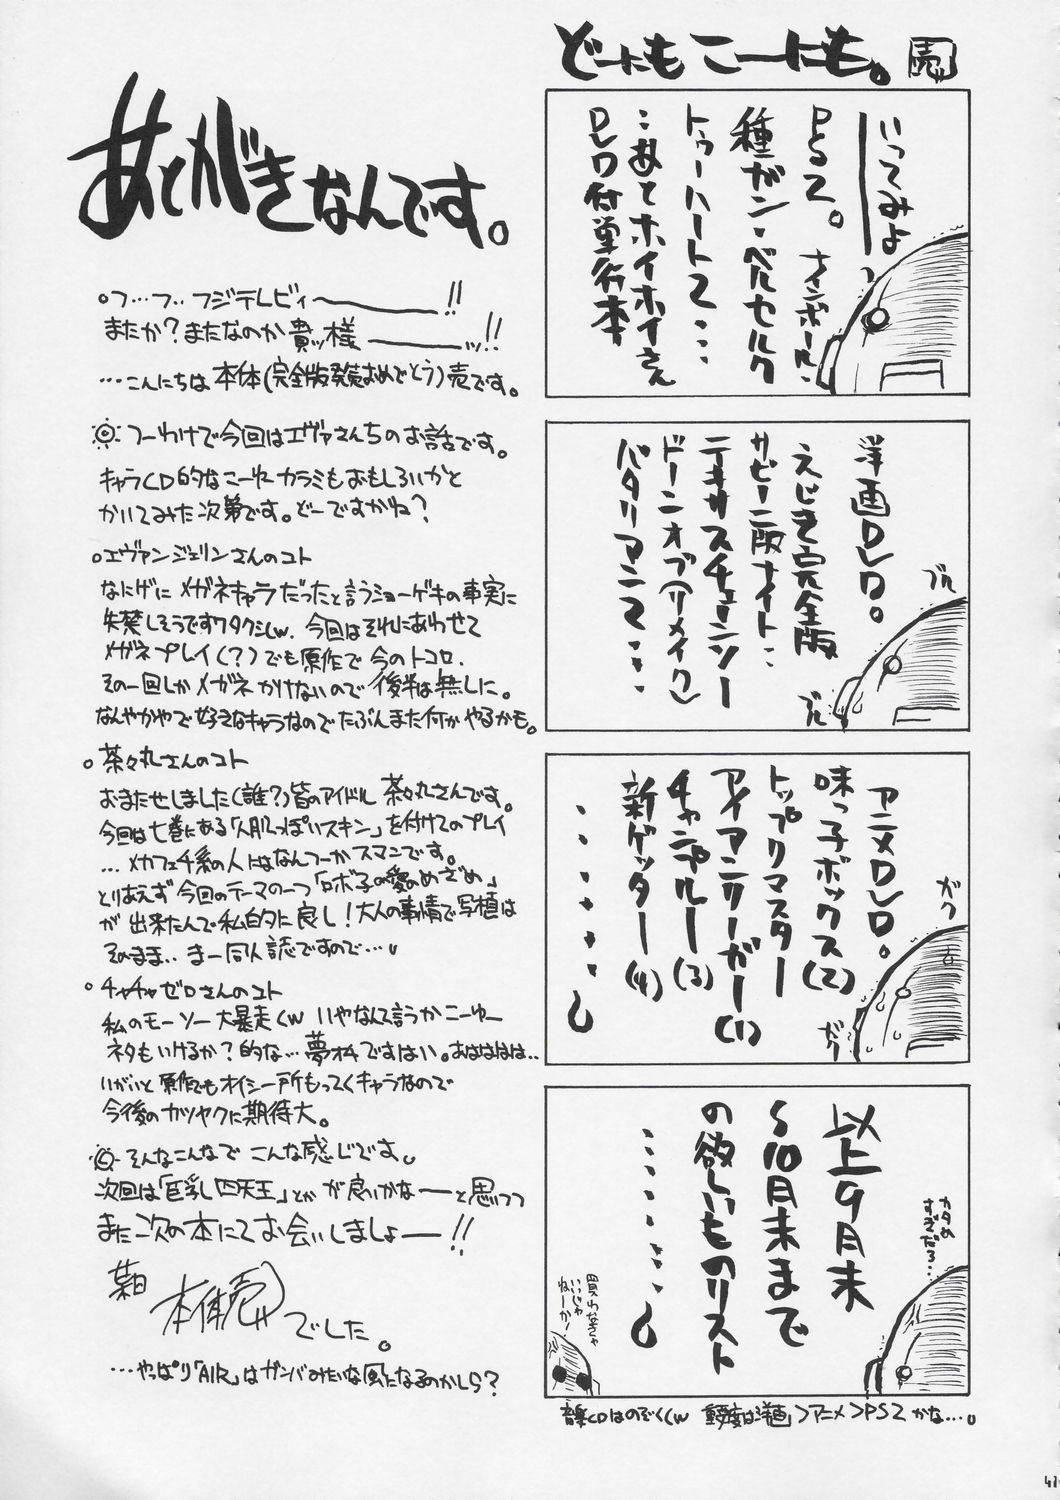 どーにも こーにも。 売
いってみよ
PS2。 ナインボール・
種ガン・ベルセルク
トゥーハート2‥‥
‥あとホイホイさん
DVD付単行本
洋画DVD。
えじき完全版
サビーニ版ナイト‥
テキサスチェーンソー
ドーンオブ(リメイク)
バタリアン2‥‥
ブル
ブル
アニメDVD。
味っ子ボックス(2)
トップリマスター
アイアンリーガー(1)
チャンプルー(3)
新ゲッター(4)
‥‥‥。
ガク
ガク
以上9月末
〜10月末まで
の欲しいものリスト
‥‥‥。
カタめ
すぎだろ…
買わなきゃ
いいじゃ
ねーかー
音楽CDはのぞく(w 重要度は洋画>アニメ>PS2 かな…。
あとがきなんです。
○フ…フ‥フジテレビィ〜―――!!
またか?またなのか貴ッ様―――ッ!!
…こんにちは 本体(完全版発売おめでとう)売です。
つーわけで今回はエヴァさんちのお話です。
キャラCD的なこーゆーカラミもおもしろいかと
かいてみた次第です。どーですかね?
○エヴァンジェリンさんのコト
なにげに メガネキャラだったと言うショーゲキの事実に
失禁しそうですワタクシ(w. 今回はそれにあわせて
メガネプレイ(?)でも原作で今のトコロ、
その一回しかメガネかけないので後半は無しに。
なんやかやで好きなキャラなのでたぶんまた何かやるかも。
○茶々丸さんのコト
おまたせしました(誰?)皆のアイドル 茶々丸さんです。
今回は七巻にある「人肌っぽいスキン」を付けてのプレイ
…メカフェチ系の人にはなんつーかスマンです。
とりあえず今回のテーマの一つ「ロボ子の愛のめざめ」
が出来たんで私的に良し!大人の事情で写植は
そのまま‥まー同人誌ですので…。
○チャチャゼロさんのコト
私のモーソー大暴走(w いやなんて言うかこーゆー
ネタもいけるか?的な…夢オチですはい。あはははは‥
いがいと原作でもオイシー所もってくキャラなので
今後のカツヤクに期待大。
そんなこんなで こんな感じです。
次回は「巨乳四天王」とかが良いかなーと思いつつ
また次の本にてお会いしましょー!!
本体売
でした。
…やっぱり「AIR」はガンバみたいな風になるのかしら?
41